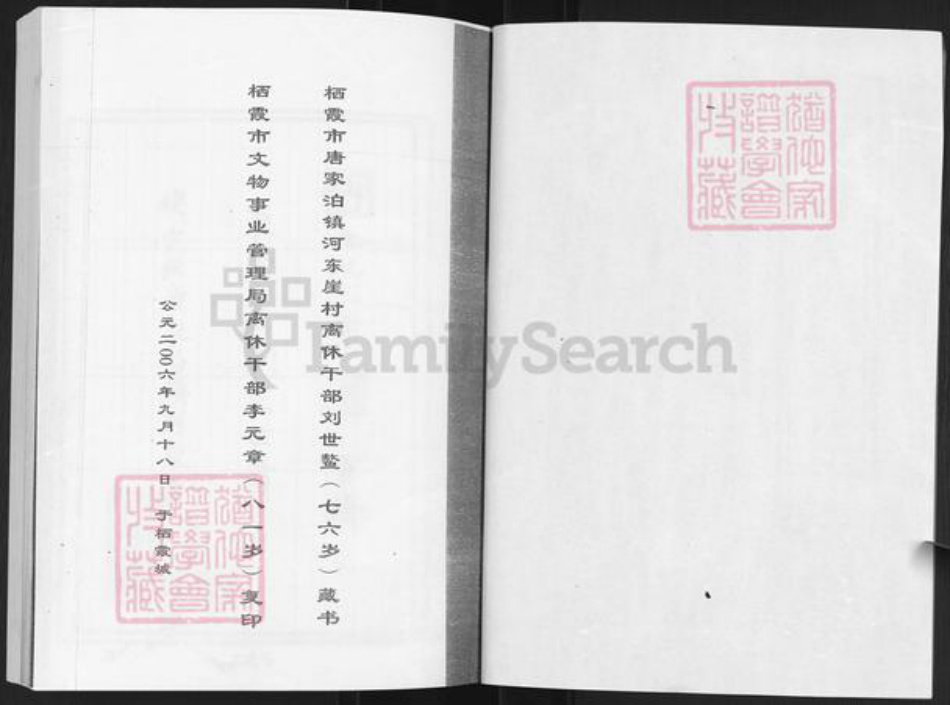 栖霞市唐家泊镇河东崖村离休干部刘世鳌（七六岁）藏书
栖霞市文物事业管理局离休干部李元章（八一岁）复印
公元二〇〇六年九月十八日 于栖霞城
FamilySearch